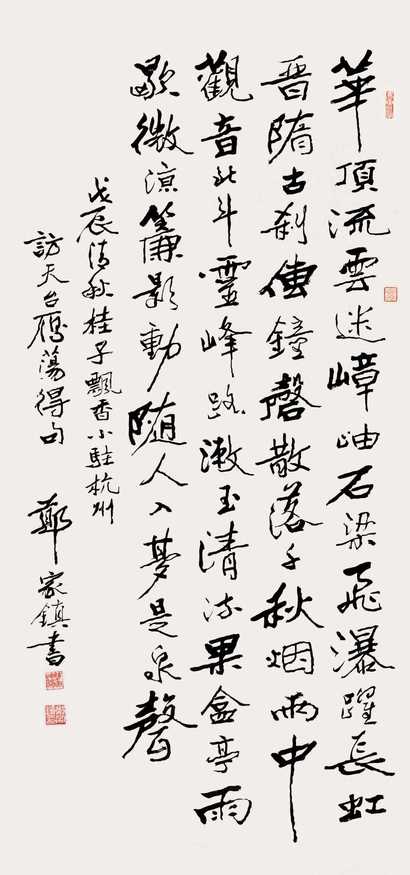 華頂流雲迷嶂岫石梁飛瀑躍長虹
晉隋古刹傳鐘磬散落千秋烟雨中
觀音北斗靈峰路漱玉清流果盒亭雨
歇微涼簾影動隨人入夢是泉聲
戊辰清秋桂子飄香小駐杭州
訪天台雁蕩得句 鄭家鎮書